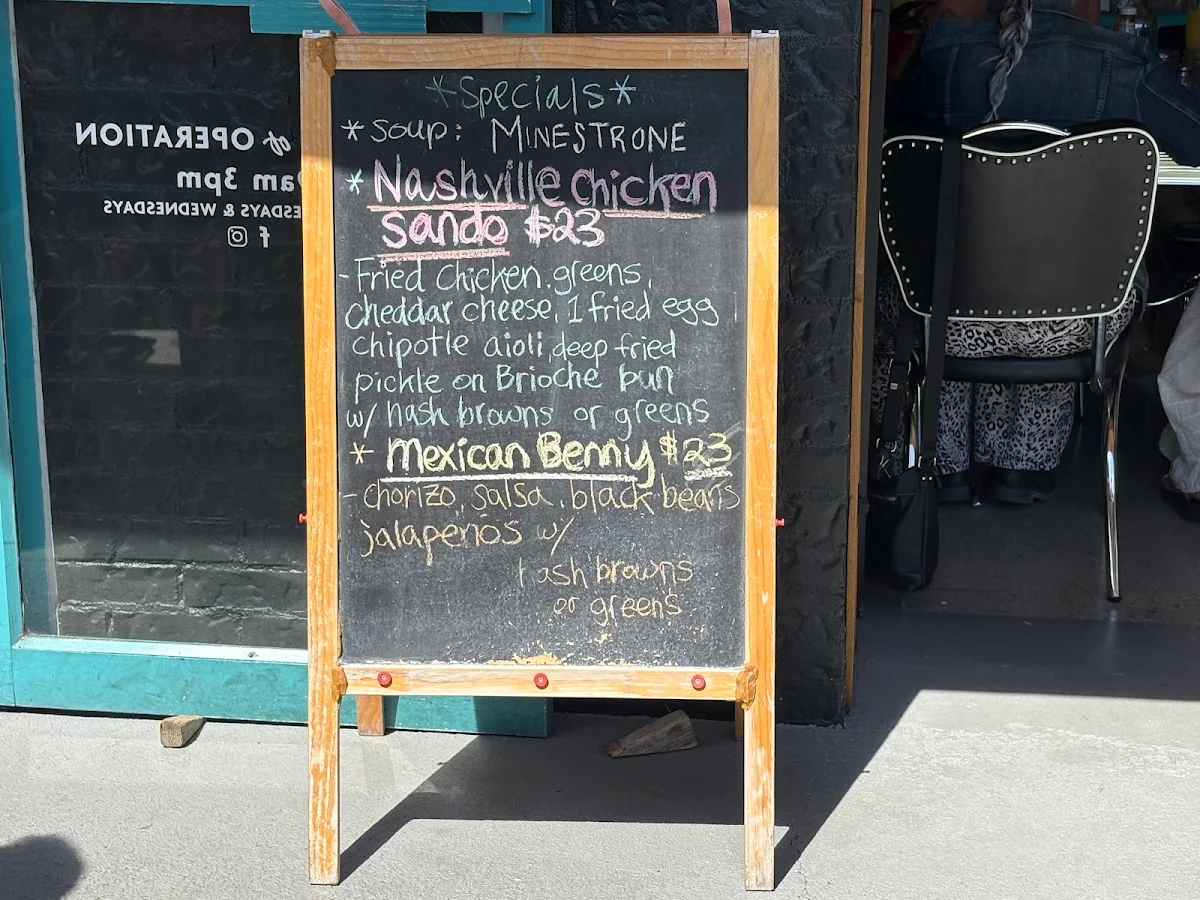 *Specials*
*soup: MINESTRONE
* Nashville Chicken
sando $23
- Fried Chicken, greens,
cheddar cheese, 1 fried egg
chipotle aioli, deep fried
pickle on Brioche bun
w/ hash browns or greens
* Mexican Benny $23
- chorizo, salsa, black beans
jalapenos w/
hash browns
or greens
of OPERATION
am 3pm
ESDAYS & WEDNESDAYS